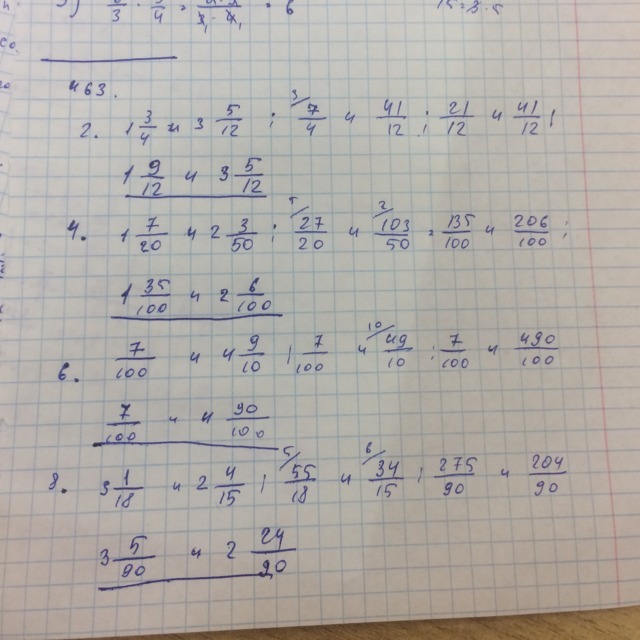 463.
2. 1 3/4 и 3 5/12 ; 3/ 7/4 и 41/12 ; 21/12 и 41/12 ;
1 9/12 и 3 5/12
4. 1 7/20 и 2 3/50 ; 5/ 27/20 и 2/ 103/50 = 135/100 и 206/100 ;
1 35/100 и 2 6/100
6. 7/100 и 4 9/10 ; 7/100 и 10/ 49/10 ; 7/100 и 490/100
7/100 и 4 90/100
8. 3 1/18 и 2 4/15 ; 5/ 55/18 и 6/ 34/15 ; 275/90 и 204/90
3 5/90 и 2 24/90